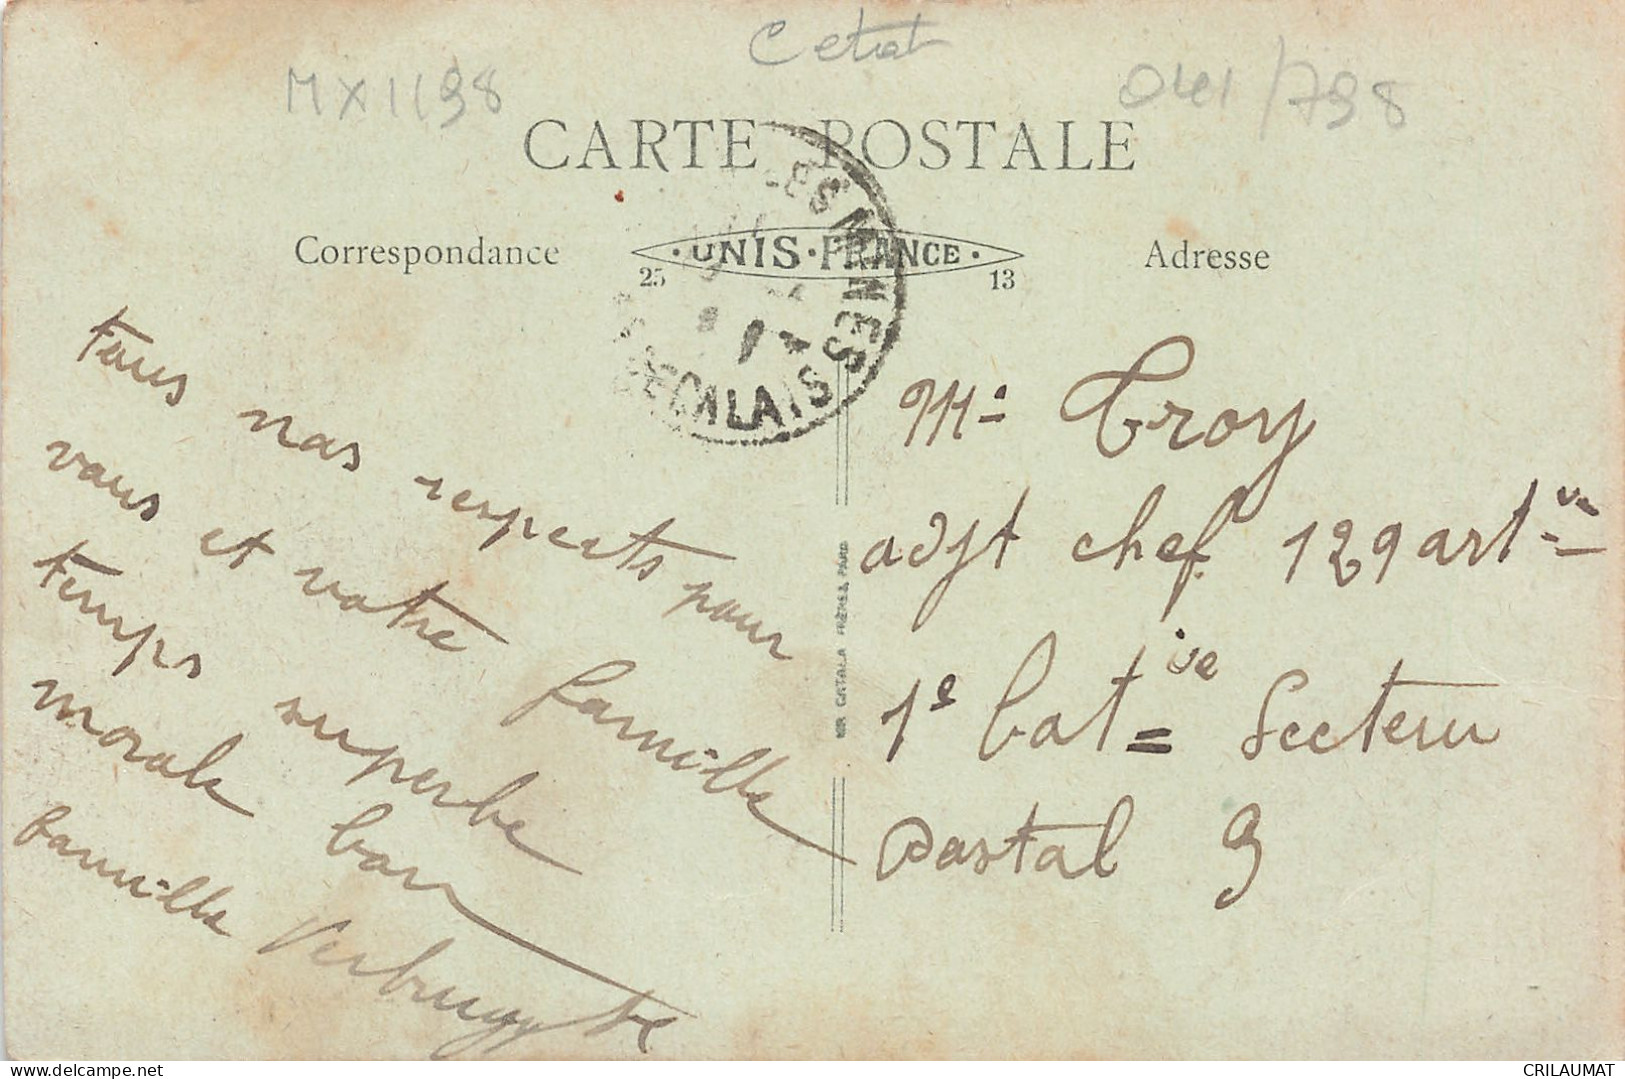 MX1198
041/798
CARTE POSTALE
Correspondance
·UNIS·FRANCE·
25
13
Adresse
LES MINES
DE CALAIS
tous nos respects pour
vous et votre famille
temps superbe
morale bon
famille Verbrugghe
Mr Troy
adjt chef 129 artie
1e batie Secteur
postal 9
CATALA FRÈRES PARIS
delcampe.net
CRILAUMAT